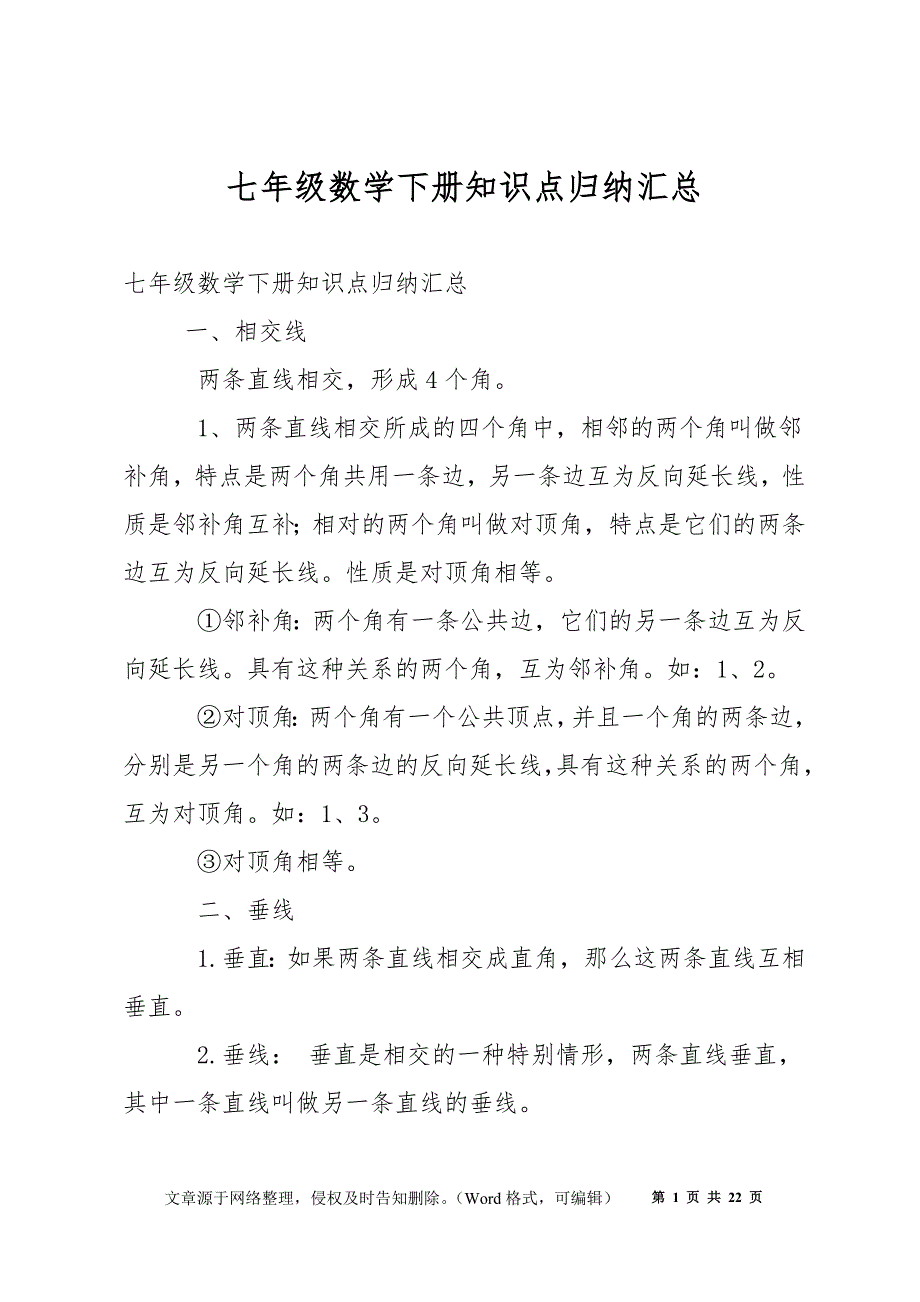 七年级数学下册知识点归纳汇总
七年级数学下册知识点归纳汇总
一、相交线
两条直线相交，形成4个角。
1、两条直线相交所成的四个角中，相邻的两个角叫做邻
补角，特点是两个角共用一条边，另一条边互为反向延长线，性
质是邻补角互补；相对的两个角叫做对顶角，特点是它们的两条
边互为反向延长线。性质是对顶角相等。
①邻补角：两个角有一条公共边，它们的另一条边互为反
向延长线。具有这种关系的两个角，互为邻补角。如：1、2。
②对顶角：两个角有一个公共顶点，并且一个角的两条边，
分别是另一个角的两条边的反向延长线，具有这种关系的两个角，
互为对顶角。如：1、3。
③对顶角相等。
二、垂线
1.垂直：如果两条直线相交成直角，那么这两条直线互相
垂直。
2.垂线： 垂直是相交的一种特别情形，两条直线垂直，
其中一条直线叫做另一条直线的垂线。
文章源于网络整理，侵权及时告知删除。（Word格式，可编辑） 第 1 页 共 22 页